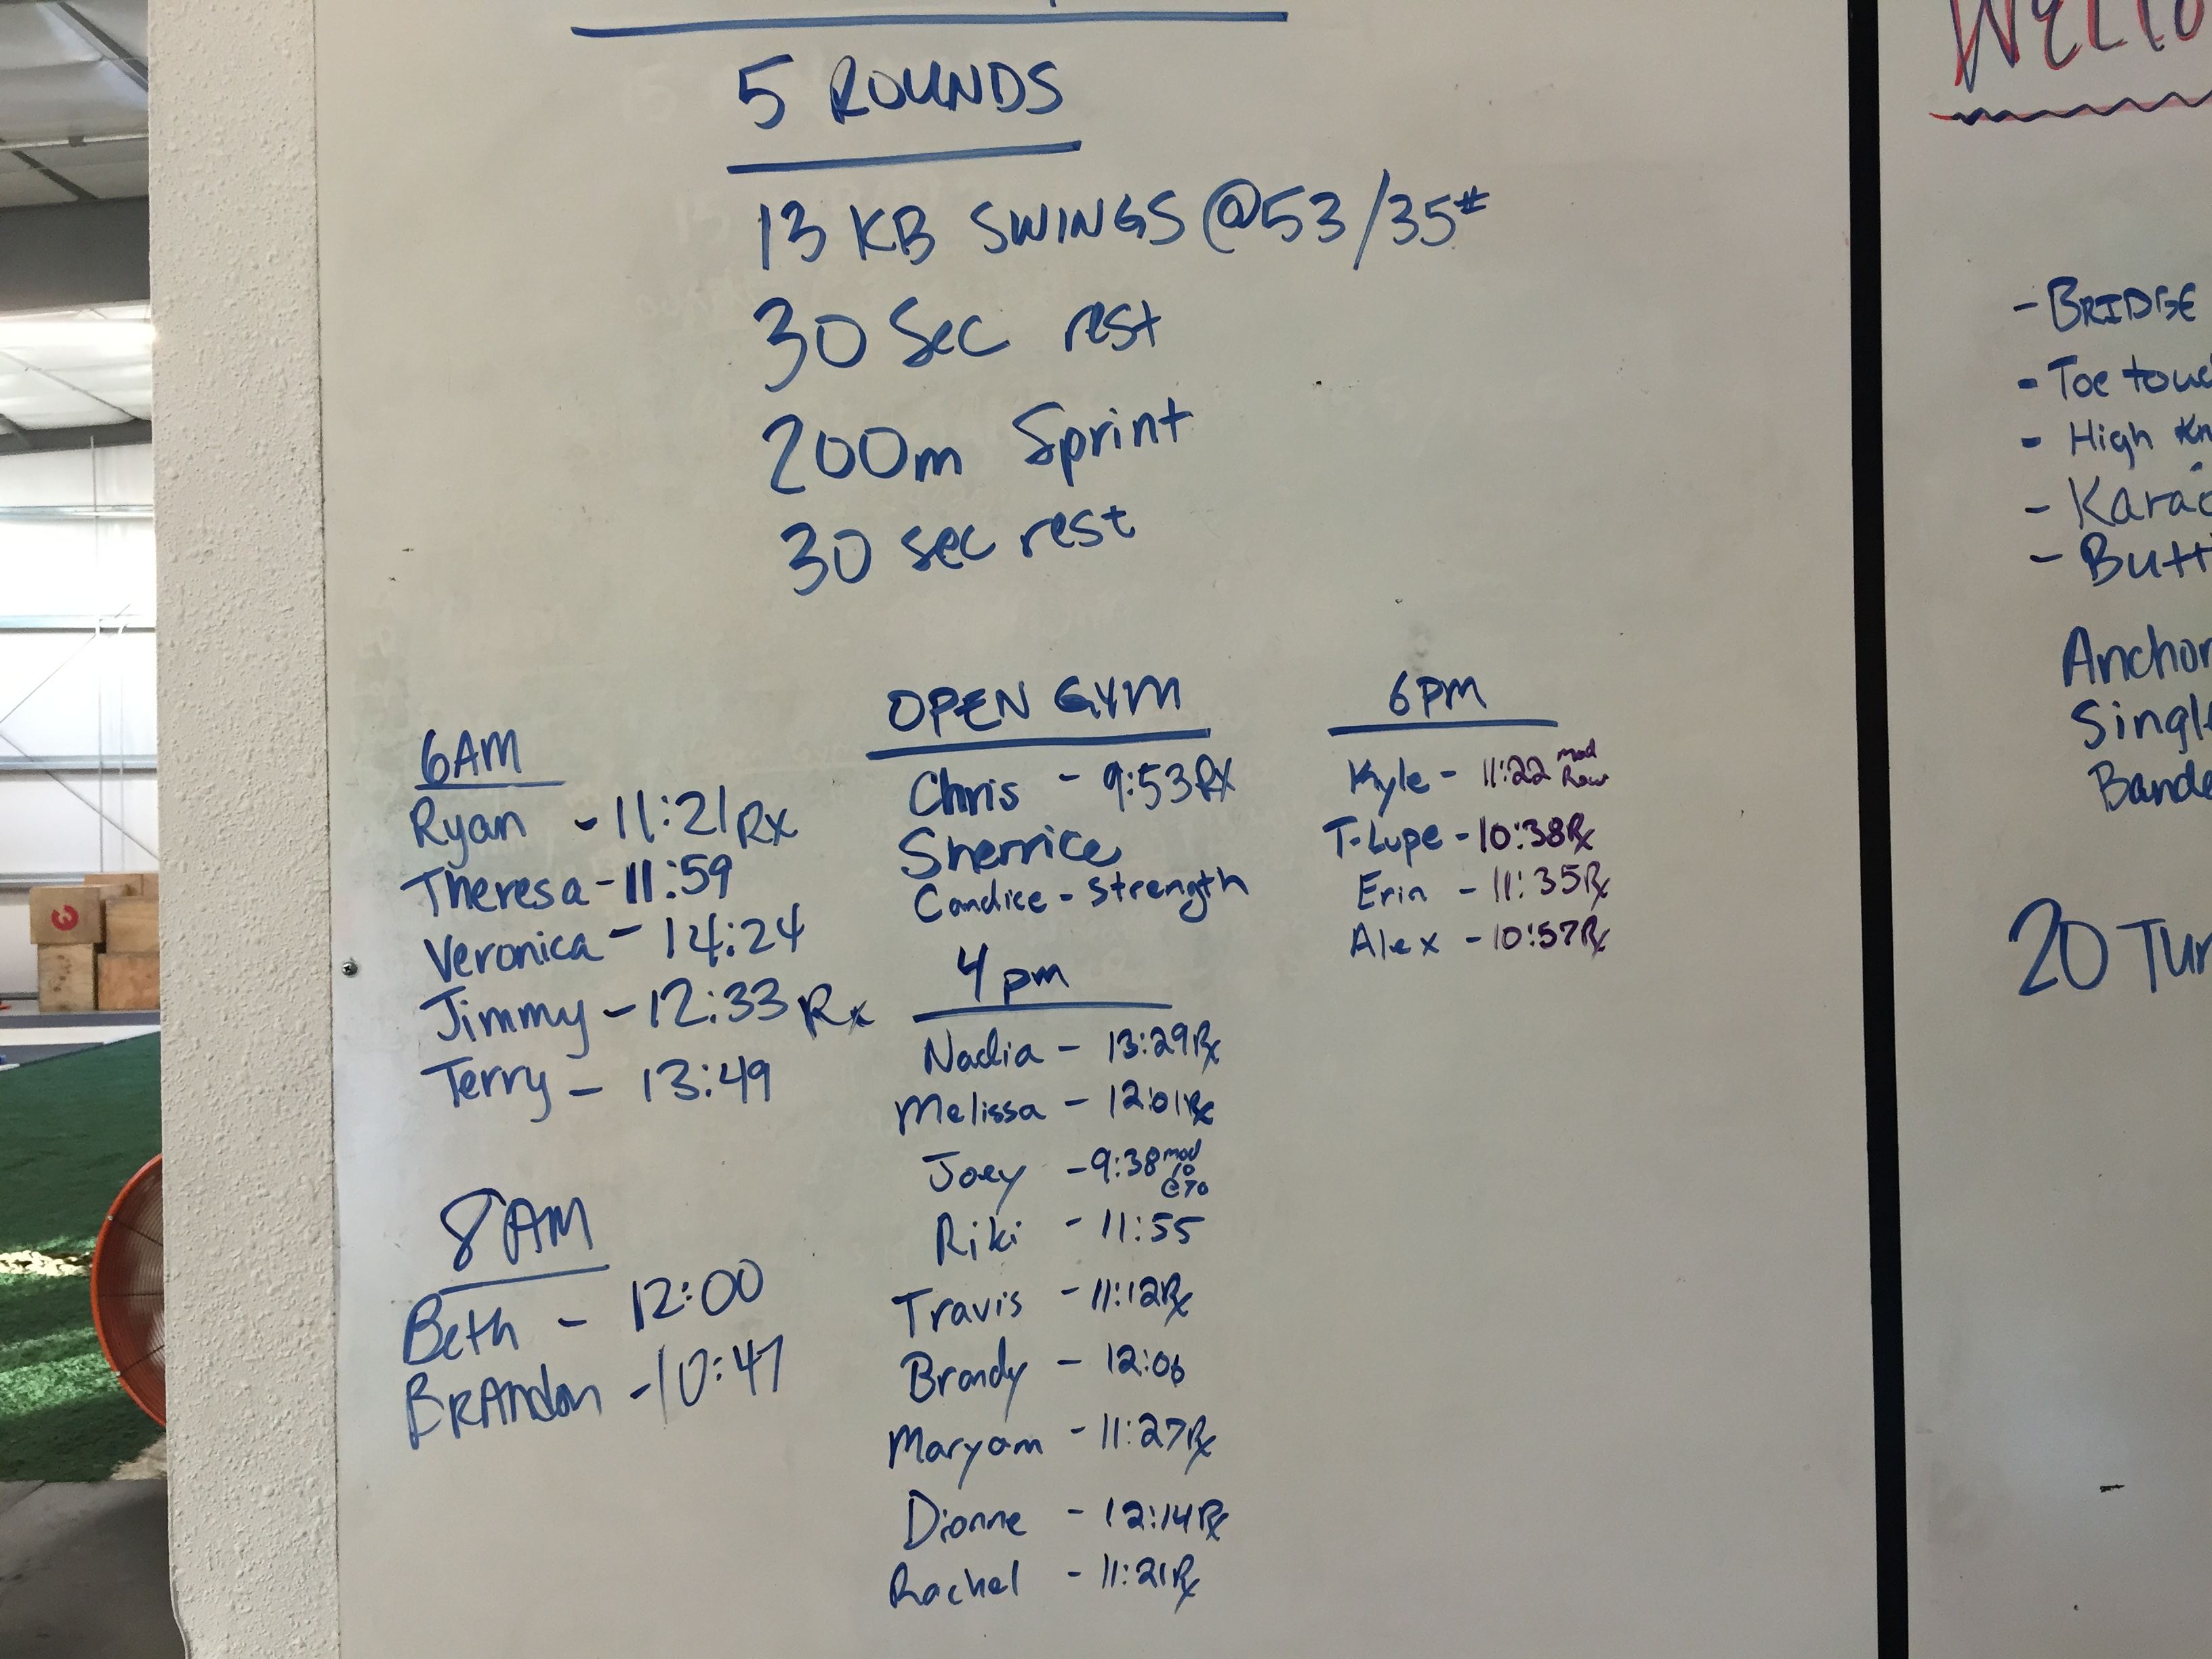 5 ROUNDS
13 KB SWINGS @53/35#
30 Sec rest
200m Sprint
30 sec rest
6AM
Ryan - 11:21 Rx
Theresa - 11:59
Veronica - 14:24
Jimmy - 12:33 Rx
Terry - 13:49
8AM
Beth - 12:00
BRAndon - 10:47
OPEN GYM
Chris - 9:53 Rx
Sherrice
Candice - Strength
4pm
Nadia - 13:29 Rx
Melissa - 12:01 Rx
Joey - 9:38 mod
10
@70
Riki - 11:55
Travis - 11:12 Rx
Brandy - 12:06
Maryam - 11:27 Rx
Dionne - 12:14 Rx
Rachel - 11:21 Rx
6pm
Kyle - 11:22 mod
Row
T-Lupe - 10:38 Rx
Erin - 11:35 Rx
Alex - 10:57 Rx
- BRIDGE
- Toe touc
- High Kn
- Karao
- Butt
Anchor
Singl
Bande
20 Tur